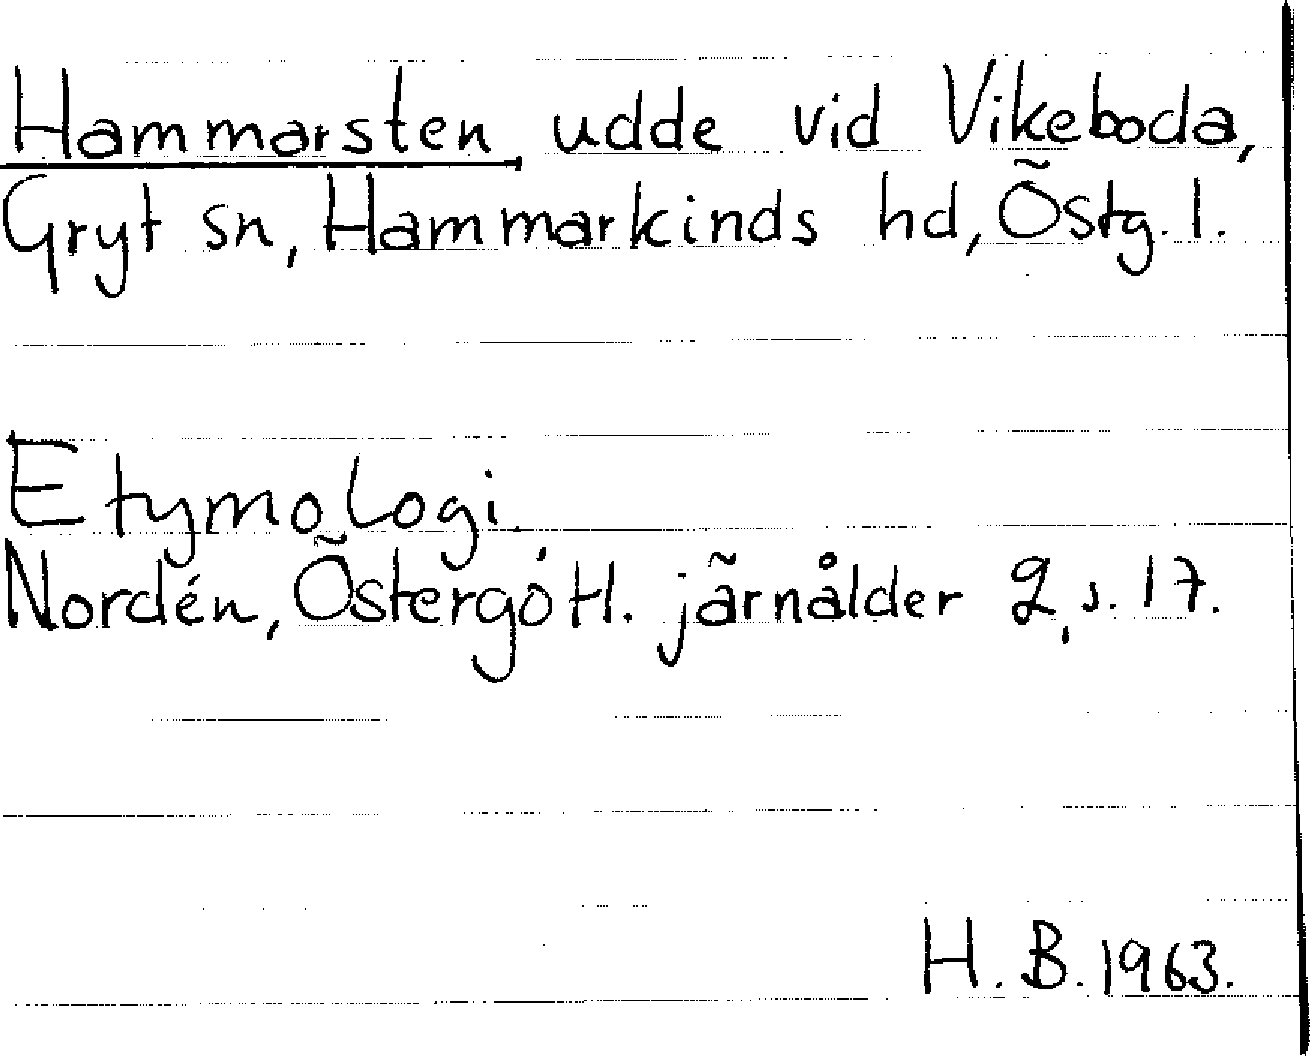 Hammarsten udde vid Vikeboda,
Gryt sn, Hammarkinds hd, Östg. l.
Etymologi.
Nordén, Östergötl. järnålder 2, s. 17.
H. B. 1963.